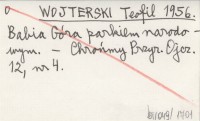 WOJTERSKI Teofil 1956.
Babia Góra parkiem narodo-
wym. - Chrońmy Przyr. Ojcz.
12, nr 4.